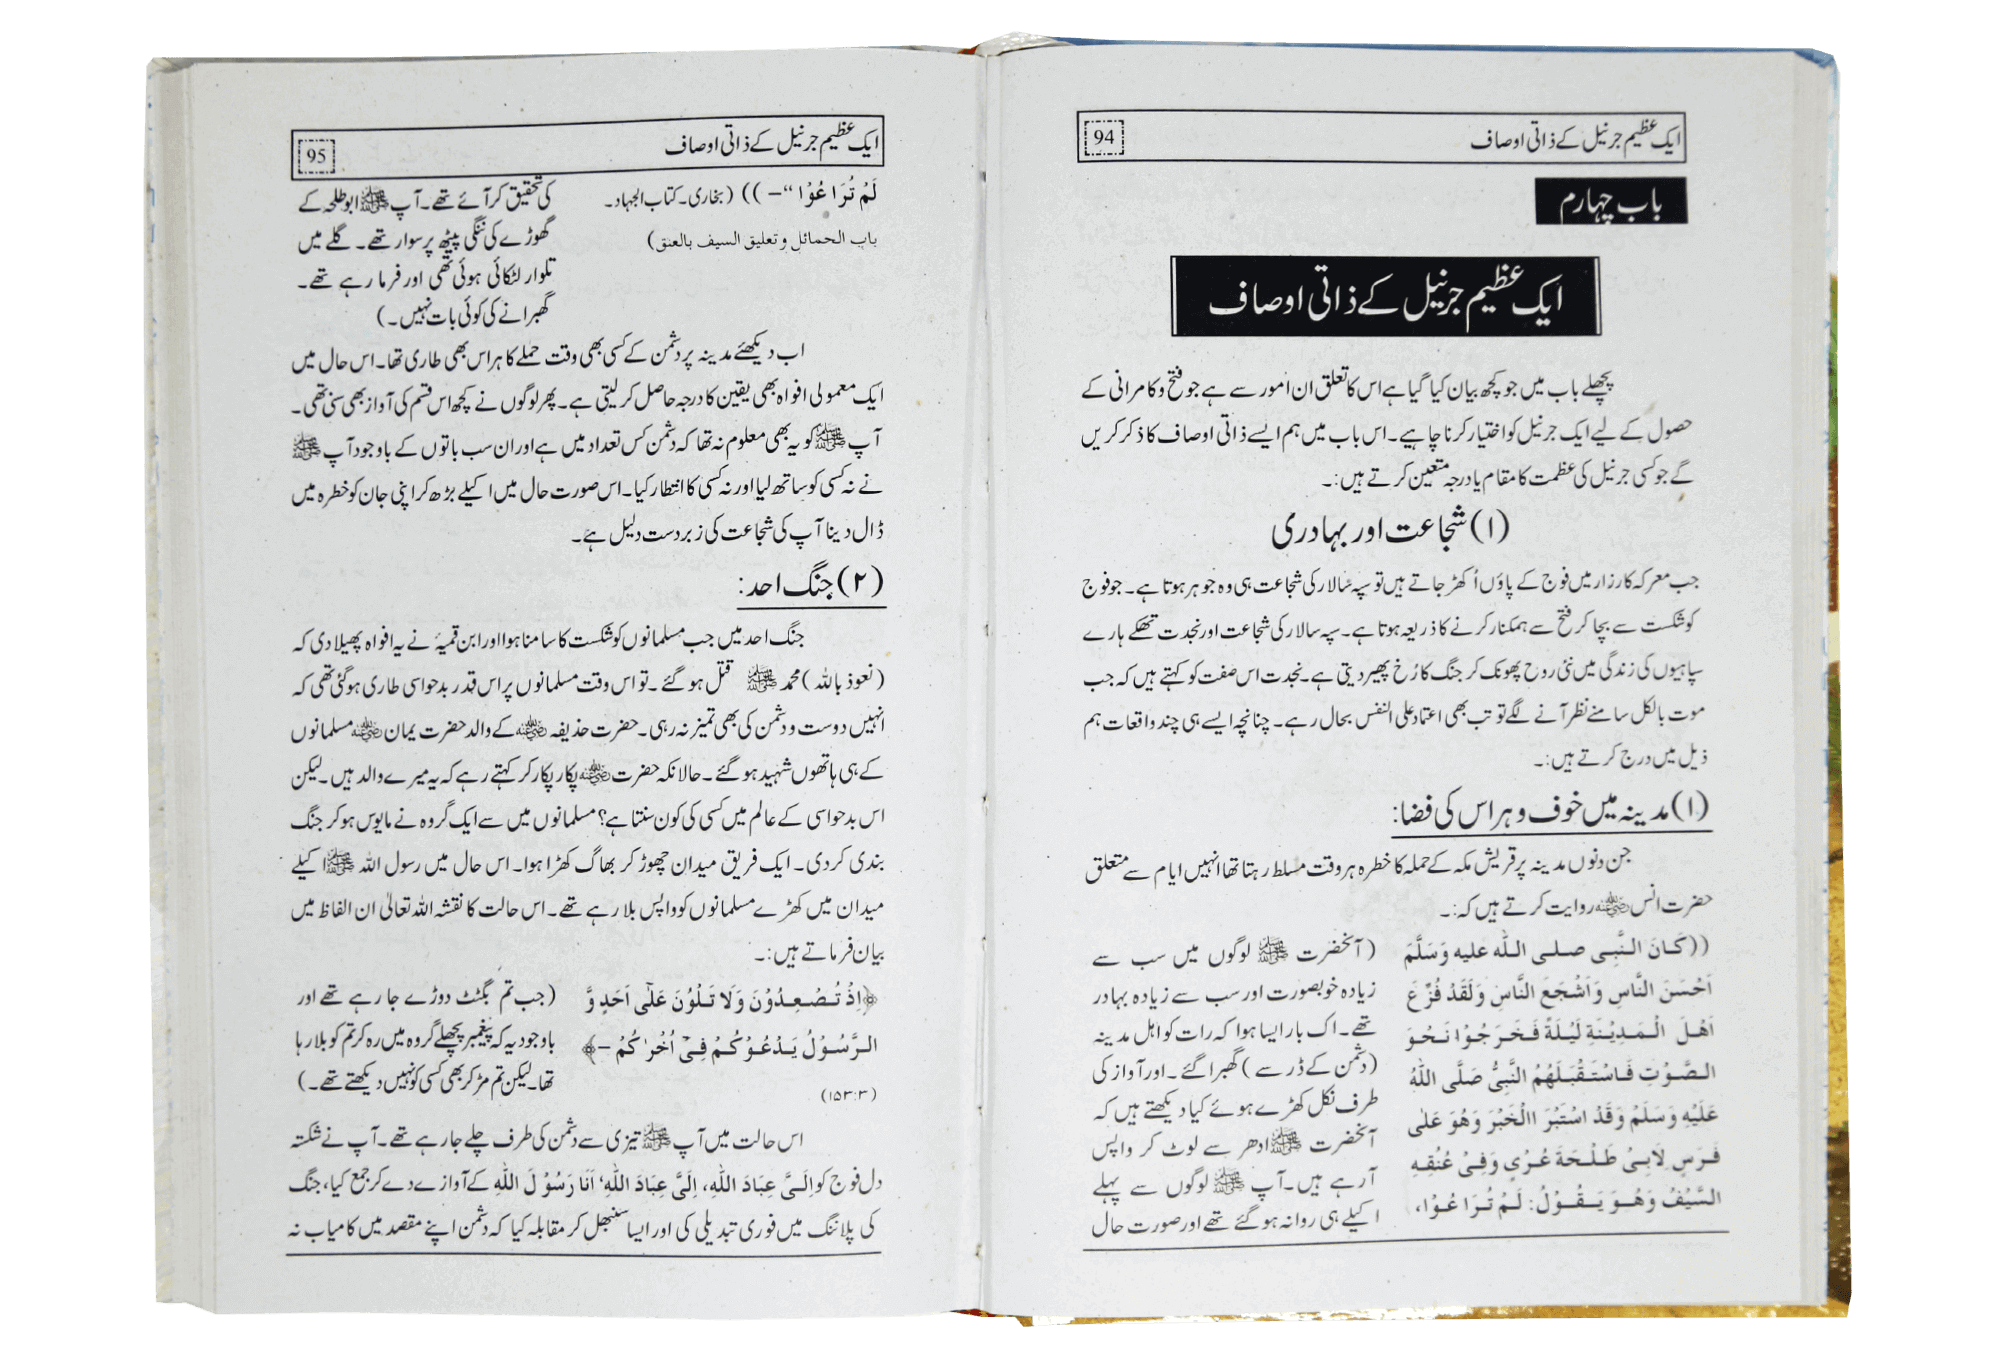 ایک عظیم جرنیل کے ذاتی اوصاف
94
باب چہارم
ایک عظیم جرنیل کے ذاتی اوصاف
پچھلے باب میں جو کچھ بیان کیا گیا ہے اس کا تعلق ان امور سے ہے جو فتح و کامرانی کے
حصول کے لیے ایک جرنیل کو اختیار کرنا چاہیے۔ اس باب میں ہم ایسے ذاتی اوصاف کا ذکر کریں
گے جو کسی جرنیل کی عظمت کا مقام یا درجہ متعین کرتے ہیں:۔
(۱) شجاعت اور بہادری
جب معرکہ کارزار میں فوج کے پاؤں اُکھڑ جاتے ہیں تو سپہ سالار کی شجاعت ہی وہ جوہر ہوتا ہے۔ جو فوج
کو شکست سے بچا کر فتح سے ہمکنار کرنے کا ذریعہ ہوتا ہے۔ سپہ سالار کی شجاعت اور نجدت تھکے ہارے
سپاہیوں کی زندگی میں نئی روح پھونک کر جنگ کا رُخ پھیر دیتی ہے۔ نجدت اس صفت کو کہتے ہیں کہ جب
موت بالکل سامنے نظر آنے لگے تو تب بھی اعتماد علی النفس بحال رہے۔ چنانچہ ایسے ہی چند واقعات ہم
ذیل میں درج کرتے ہیں:۔
(۱) مدینہ میں خوف و ہراس کی فضا:
جن دنوں مدینہ پر قریش مکہ کے حملہ کا خطرہ ہر وقت مسلط رہتا تھا انہیں ایام سے متعلق
حضرت انس رضی اللہ عنہ روایت کرتے ہیں کہ:۔
((كَانَ النَّبِى صلى الله عليه وَسَلَّمَ
اَحْسَنَ النَّاسِ وَاَشْجَعَ النَّاسِ وَلَقَدْ فُزِّعَ
اَهْلَ الْمَدِيْنَةِ لَيْلَةً فَخَرَجُوْا نَحْوَ
الصَّوْتِ فَاسْتَقْبَلَهُمُ النَّبِىُّ صَلَّى اللهُ
عَلَيْهِ وَسَلَّمْ وَقَدْ اسْتَبْرَ االْخَبْرَ وَهُوَ عَلٰى
فَرَسٍ لِاَبِىْ طَلْحَةَ عُرْىٍ وَفِىْ عُنُقِهِ
السَّيْفُ وَهُوَ يَقُوْلُ: لَمْ تُرَاعُوْا،
(آنحضرت ﷺ لوگوں میں سب سے
زیادہ خوبصورت اور سب سے زیادہ بہادر
تھے۔ اک بار ایسا ہوا کہ رات کو اہل مدینہ
(دشمن کے ڈر سے) گھبرا گئے۔ اور آواز کی
طرف نکل کھڑے ہوئے کیا دیکھتے ہیں کہ
آنحضرت ﷺ ادھر سے لوٹ کر واپس
آ رہے ہیں۔ آپ ﷺ لوگوں سے پہلے
اکیلے ہی روانہ ہو گئے تھے اور صورت حال
ایک عظیم جرنیل کے ذاتی اوصاف
95
لَمْ تُرَاعُوْا“–)) (بخاری۔ کتاب الجہاد۔
باب الحمائل و تعلیق السیف بالعنق)
کی تحقیق کر آئے تھے۔ آپ ﷺ ابوطلحہ کے
گھوڑے کی ننگی پیٹھ پر سوار تھے۔ گلے میں
تلوار لٹکائی ہوئی تھی اور فرما رہے تھے۔
گھبرانے کی کوئی بات نہیں۔)
اب دیکھئے مدینہ پر دشمن کے کسی بھی وقت حملے کا ہراس بھی طاری تھا۔ اس حال میں
ایک معمولی افواہ بھی یقین کا درجہ حاصل کر لیتی ہے۔ پھر لوگوں نے کچھ اس قسم کی آواز بھی سنی تھی۔
آپ ﷺ کو یہ بھی معلوم نہ تھا کہ دشمن کس تعداد میں ہے اور ان سب باتوں کے باوجود آپ ﷺ
نے نہ کسی کو ساتھ لیا اور نہ کسی کا انتظار کیا۔ اس صورت حال میں اکیلے بڑھ کر اپنی جان کو خطرہ میں
ڈال دینا آپ کی شجاعت کی زبردست دلیل ہے۔
(۲) جنگ احد:
جنگ احد میں جب مسلمانوں کو شکست کا سامنا ہوا اور ابن قمیۂ نے یہ افواہ پھیلا دی کہ
(نعوذ باللہ) محمد ﷺ قتل ہو گئے۔ تو اس وقت مسلمانوں پر اس قدر بدحواسی طاری ہو گئی تھی کہ
انہیں دوست و دشمن کی بھی تمیز نہ رہی۔ حضرت حذیفہ رضی اللہ عنہ کے والد حضرت یمان رضی اللہ عنہ مسلمانوں
کے ہی ہاتھوں شہید ہو گئے۔ حالانکہ حضرت رضی اللہ عنہ پکار پکار کر کہتے رہے کہ یہ میرے والد ہیں۔ لیکن
اس بدحواسی کے عالم میں کسی کی کون سنتا ہے؟ مسلمانوں میں سے ایک گروہ نے مایوس ہو کر جنگ
بندی کر دی۔ ایک فریق میدان چھوڑ کر بھاگ کھڑا ہوا۔ اس حال میں رسول اللہ ﷺ اکیلے
میدان میں کھڑے مسلمانوں کو واپس بلا رہے تھے۔ اس حالت کا نقشہ اللہ تعالیٰ ان الفاظ میں
بیان فرماتے ہیں:۔
﴿اِذْ تُصْعِدُوْنَ وَلَا تَلْوٗنَ عَلٰٓى اَحَدٍ وَّ
الرَّسُوْلُ يَدْعُوْكُمْ فِىْٓ اُخْرٰىكُمْ –﴾
(۱۵۳:۳)
(جب تم بگٹٹ دوڑے جا رہے تھے اور
باوجود یہ کہ پیغمبر پچھلے گروہ میں رہ کر تم کو بلا رہا
تھا۔ لیکن تم مڑ کر بھی کسی کو نہیں دیکھتے تھے۔)
اس حالت میں آپ ﷺ تیزی سے دشمن کی طرف چلے جا رہے تھے۔ آپ نے شکستہ
دل فوج کو اِلَىَّ عِبَادَ اللهِ، اِلَىَّ عِبَادَ اللهِ، اَنَا رَسُوْلَ اللهِ کے آوازے دے کر جمع کیا، جنگ
کی پلاننگ میں فوری تبدیلی کی اور ایسا سنبھل کر مقابلہ کیا کہ دشمن اپنے مقصد میں کامیاب نہ